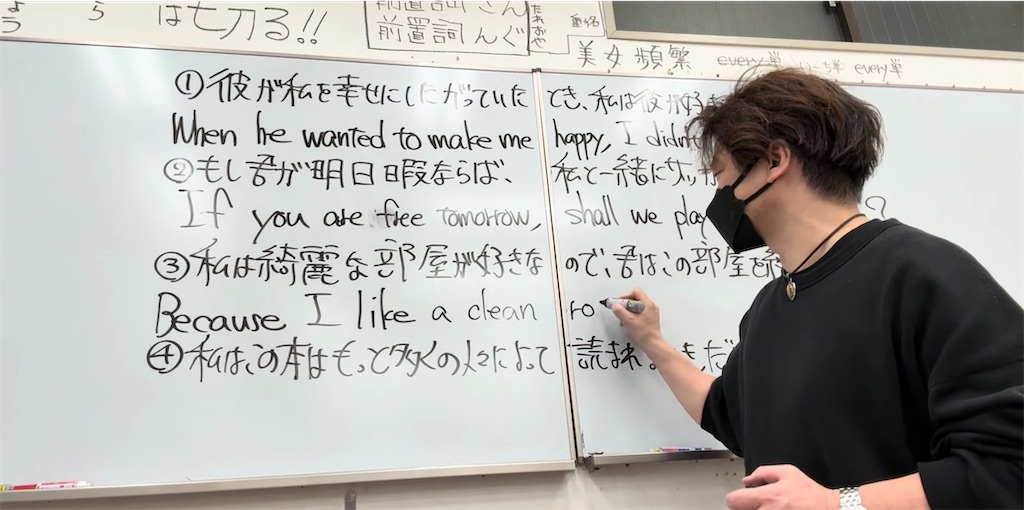 は七刀る!!
前置詞 さん
前置詞 んぐ
美女頻繁 every単 いーち単 every単
①彼が私を幸せにしたがっていた とき、私は彼が好き
When he wanted to make me happy, I didn't
②もし吾が明日暇ならば、私と一緒に
If you are free tomorrow, shall we play ?
③私は綺麗な部屋が好きな ので、吾は、この部屋を
Because I like a clean ro
④私は、この本はもっと多くの人々によって 読まれ